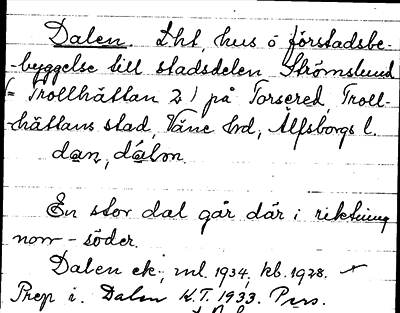 Dalen. Lht, hus o förstadsbe-
-byggelse till stadsdelen Strömslund
(= Trollhättan 2) på Torsered, Troll-
-hättans stad, Väne hd, Älfsborgs l.
dan, dálən
En stor dal går där i riktning
norr - söder.
Dalen ek; ml. 1934, kb. 1928.
Prep i. Dalen K.T. 1933. Pers.